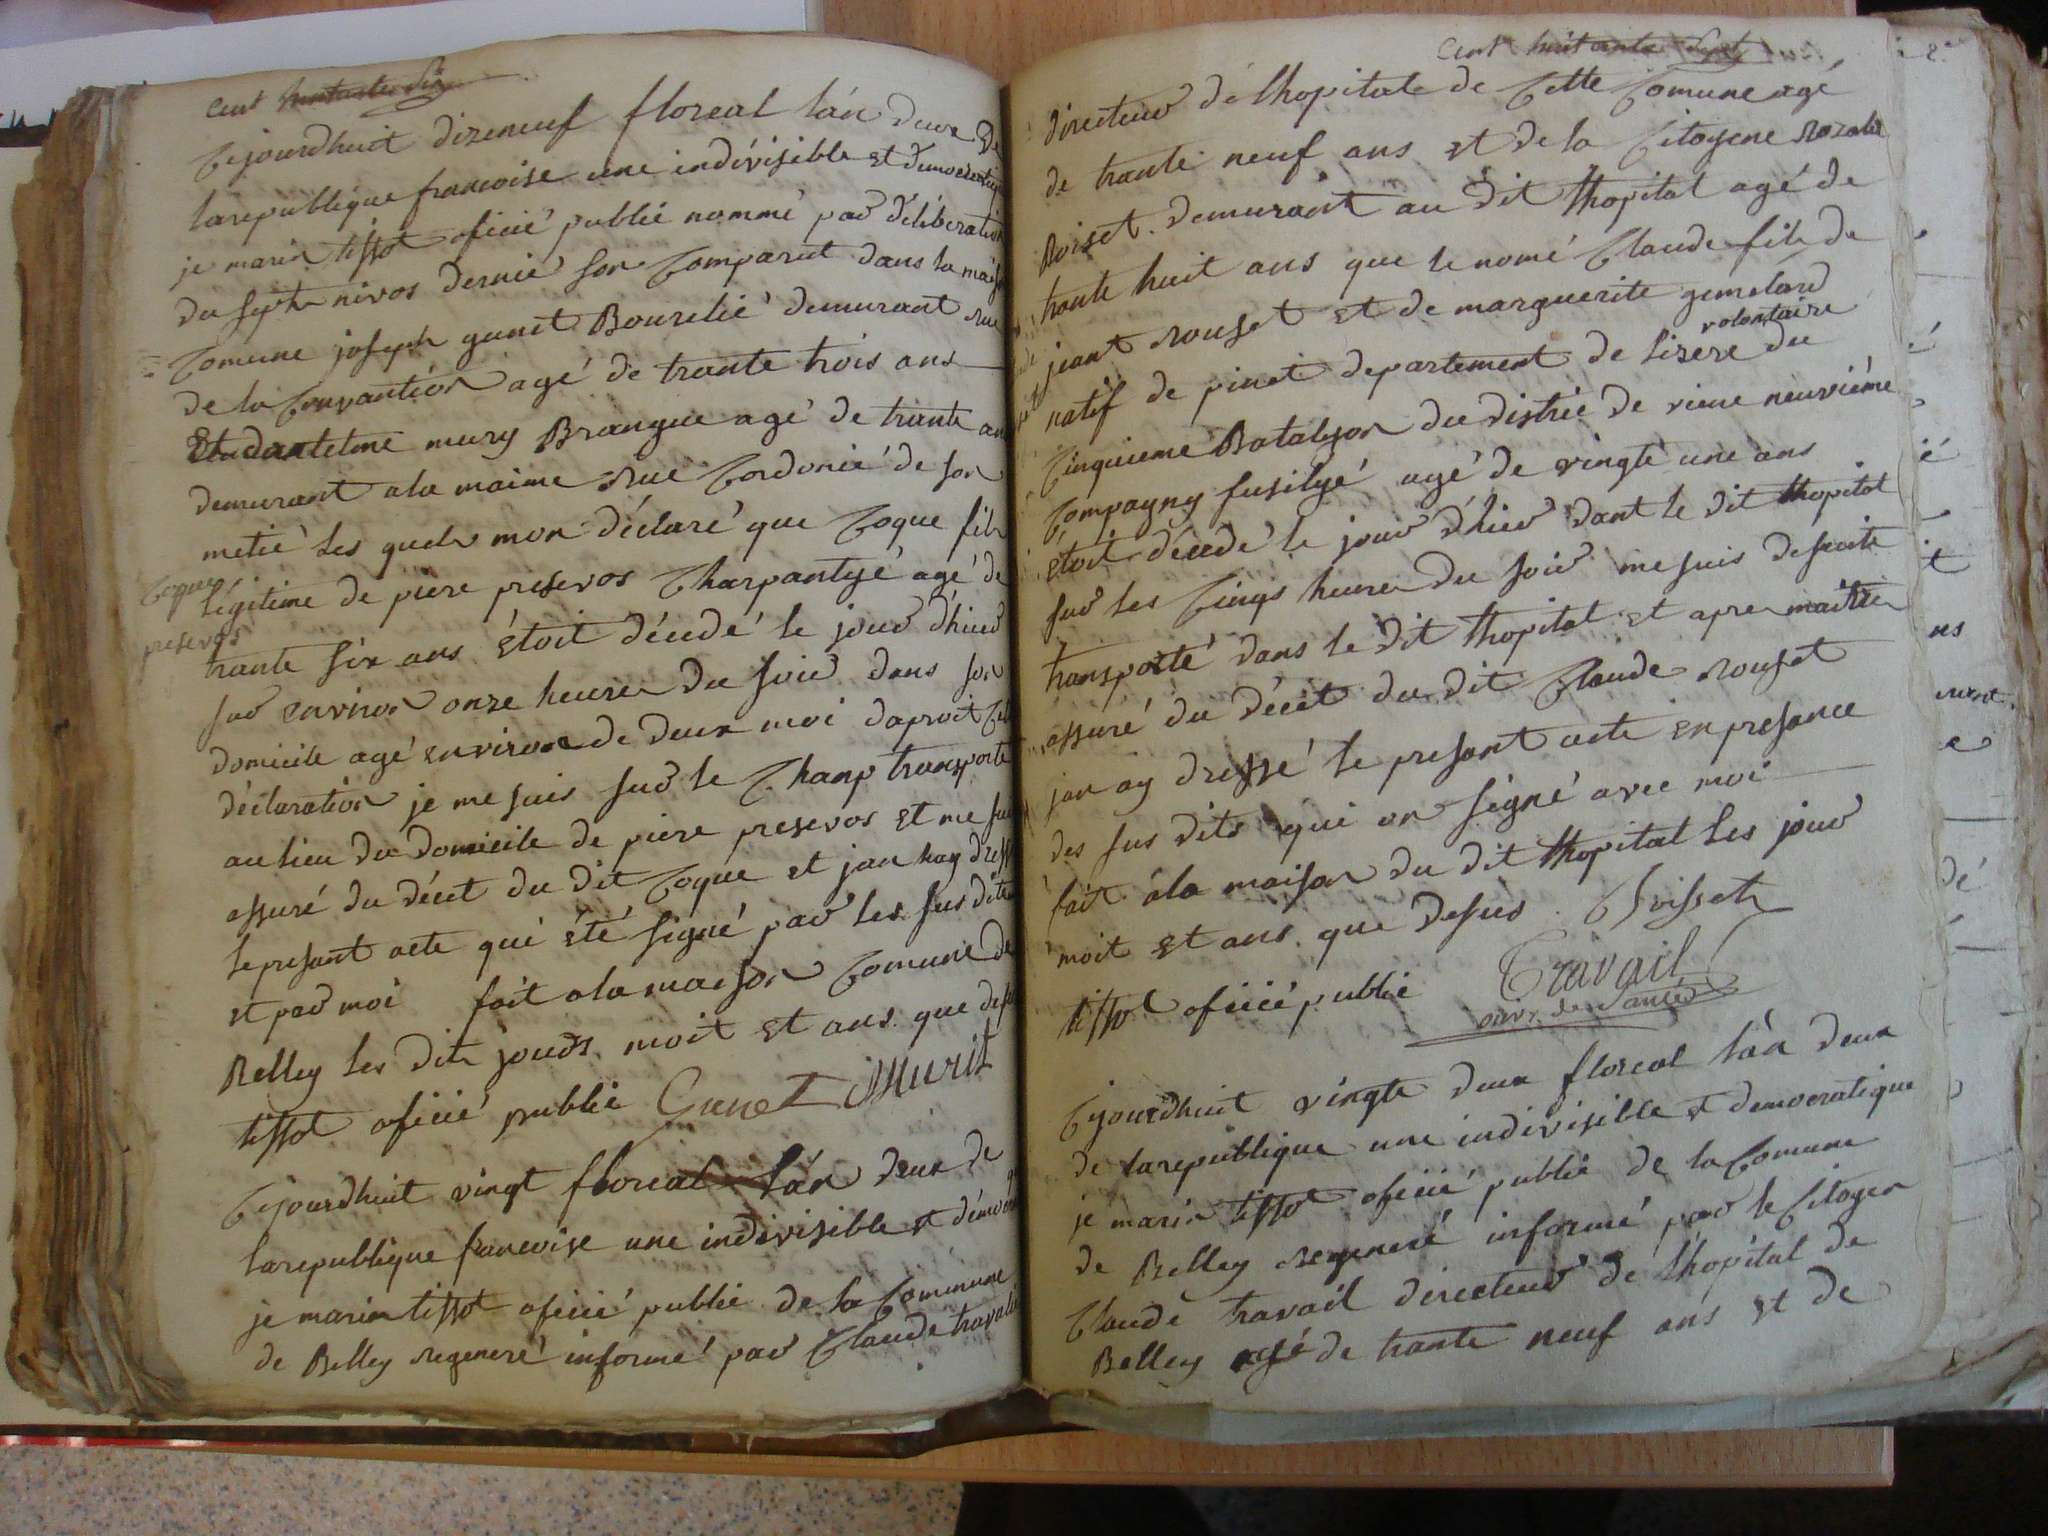 Cent huitante Six
Cejourdhuit dizeneuf floreal lán deux De
larepublique francoise une indivisible et démocratique
je marin tissot oficié publié nommé par délibération
du septr nivos dernié son Comparut dans la maison
Comune joseph gunet Bourelié demurant rue
de la Convantion agé de trante trois ans
Et dantelme mury Brangue agé de trante ans
demurant a la maime Rue Cordonié de son
metié les quels mon déclaré que Coque fils
Coque
presevos
légitime de piere presevos Charpantyé agé de
trante six ans étoit décedé le jour d'hier
sur environ onze heures Du soir dans son
domicile agé environ de deux moi daproit cet
déclaration je me suis sur le Champ transporté
au lieu du domicile de piere presevos et me suis
assuré du décet du dit Coque et jan hay dressé
le presant acte qui été signé par les sus dits
et par moi fait a la maison Comune de
Belley les dit jours moit et ans que desus
tissot oficié publié Gunet Murit
Cejourdhuit vingt floreal lán deux de
larepublique francoise une indivisible et démocratique
je marin tissot oficié publié de la Commune
de Belley regeneré informé par Claude travail
Cent huitante Sept
directeur dé lhopitale de Cette Comune agé
de trante neuf ans et de la Citoyene Rozalie
Boiset demurant au dit lhopital agé de
trante huit ans que le nomé Claude fils de
jeant Rouset et de marguerite gemelard
volontaire
natif de pinet departement de Lizere du
Cinquieme Batalyon du distric de viene neuvième
Compagny fusilyé agé de vingte une ans
étoit décedé le jour d'hier dant le dit lhopital
sur les Cinqs heures du soir me suis desuite
transporté dans le dit lhopital et apres maitre
assuré du décét du dit Claude Rouset
jan ay dressé le presant acte en presance
des sus dits qui on signé avec moi
fait á la maison du dit lhopital les jour
moit et ans que desus Boisset
tissot oficié publié Travail
offir de santé
Cejourdhuit vingte deux floreal lán deux
de larepublique une indivisible et democratique
je marin tissot oficié publié de la Comune
de Belley regeneré informé par le Citoyen
Claude travail directeur de lhopital de
Belley agé de trante neuf ans et de